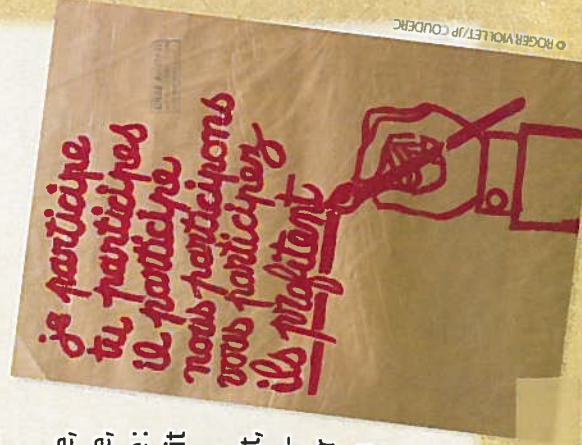 je participe
tu participes
il participe
nous participons
vous participez
ils profitent
© ROGER VIOLLET/JP COUDERC
e,
e,
:
it
t,
-
r